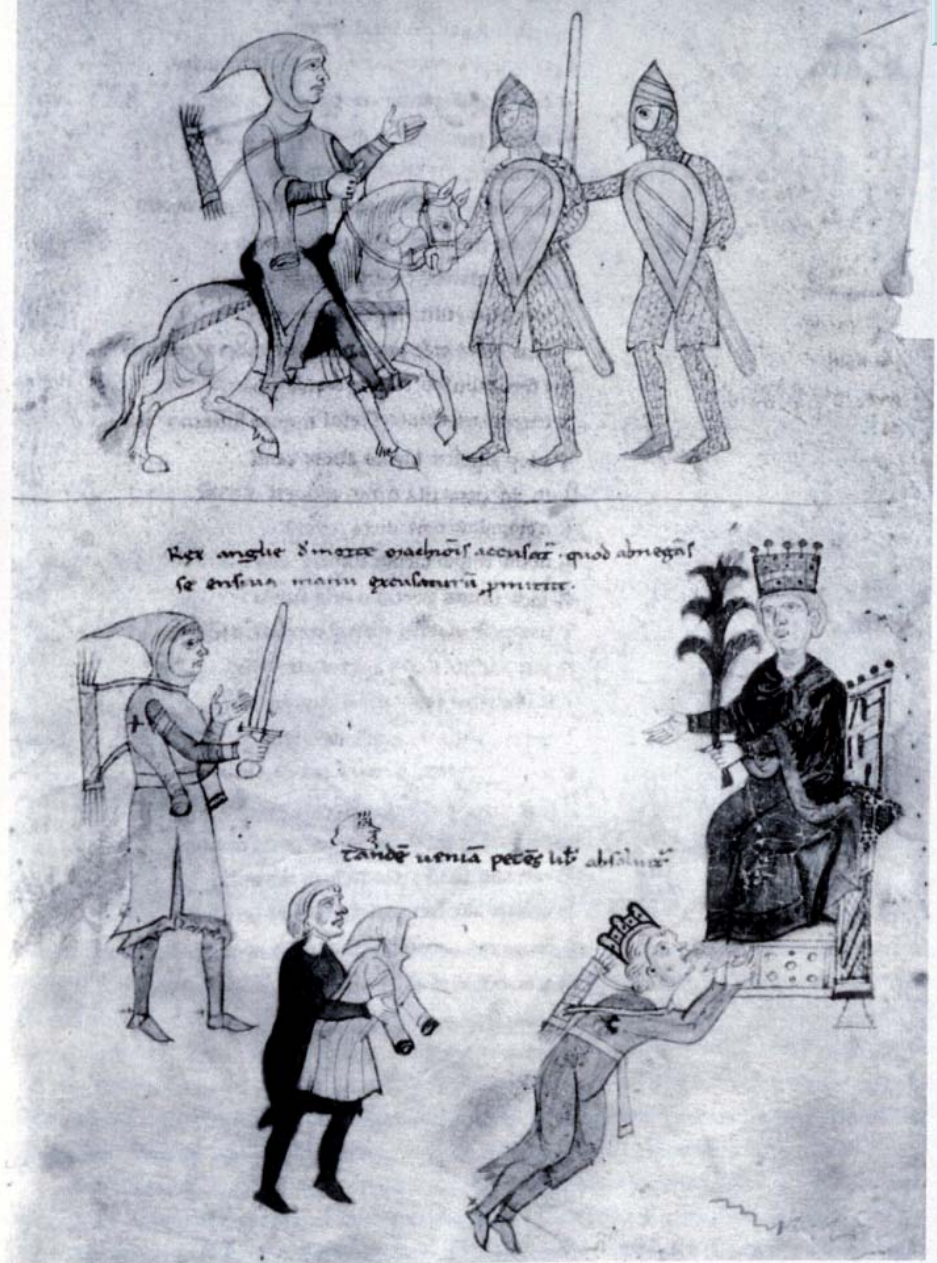 Rex anglie d' morte marchiōis accusat̄ . quod abnegās
se ensiua manu excusaturū p̄mittit .
tandē ueniā petēs lib̄ absoluit̄